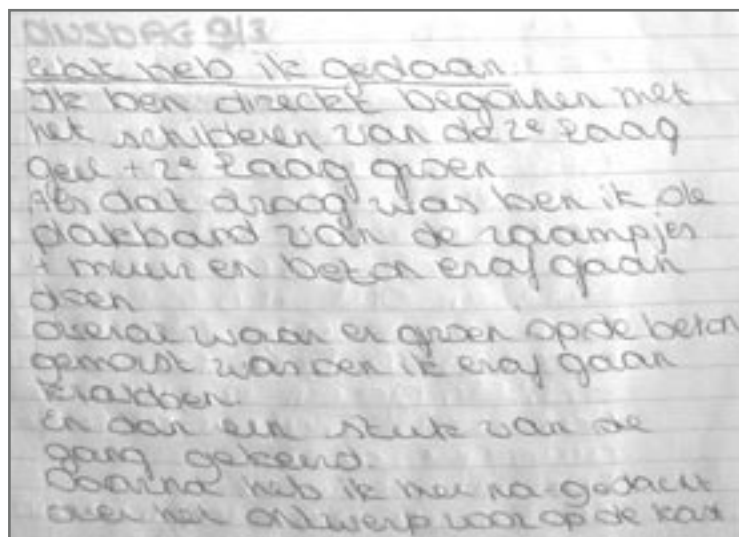 DINSDAG 9/3
Wat heb ik gedaan:
Ik ben direckt begonnen met
het schilderen van de 2e laag
geel + 2e laag groen
Als dat droog was ben ik de
plakband van de raampjes
+ muur en beton eraf gaan
doen
overal waar er groen op de beton
gemorst was ben ik eraf gaan
krabben.
En dan een stuk van de
gang gekeerd.
Daarna heb ik mee na-gedacht
over het ontwerp voor op de kast